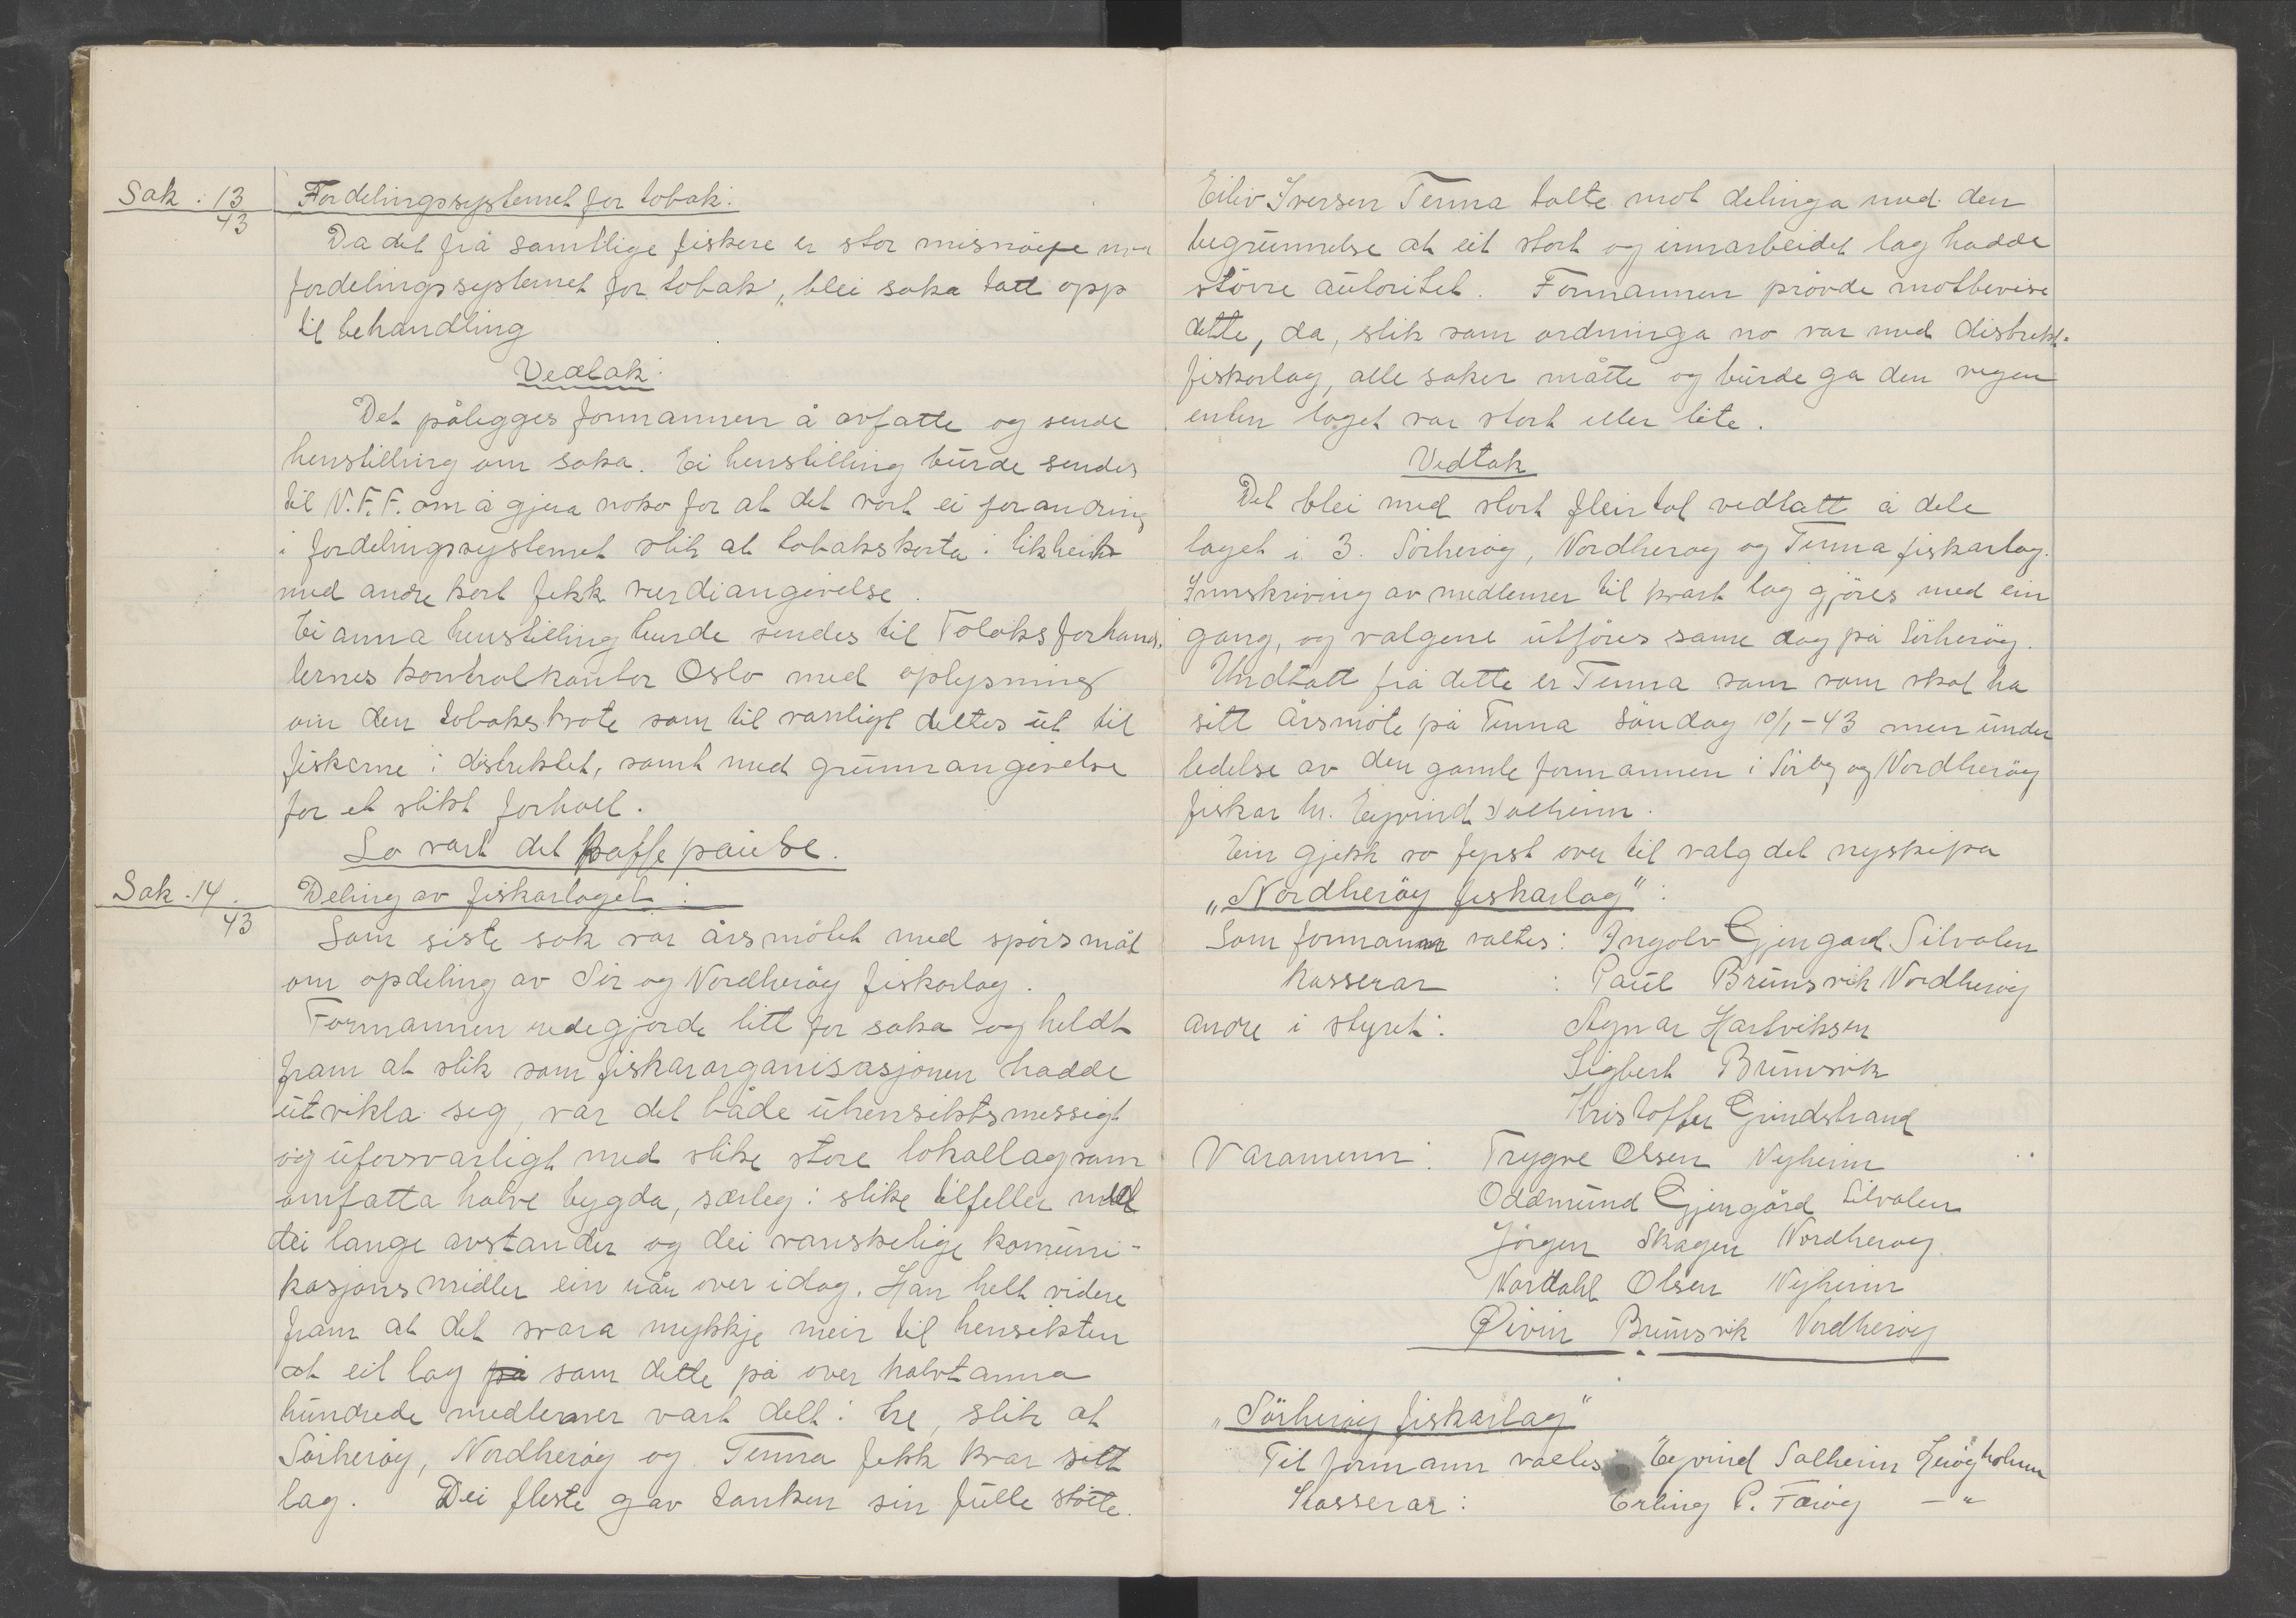 Sak. 13
43
Fordelingssystemet for tobak.
Da det frå samtlige fiskere er stor misnöye
fordelingssystemet for tobak, blei saka tatt opp
til behandling
Vedtak.
Det pålegges formannen å avfatte og sende
henstilling om saka. Ei henstilling burde sendes
til N.F.F. om å gjera noko for at det vart ei forandring
i fordelingssystemet slik at tobakskorta i likheit
med andre kort fekk verdiangivelse.
Ei anna henstilling burde sendes til Tobaksforhand-
lernes kontrolkontor Oslo med oplysning
om den tobakskvote som til vanligt deltes ut til
fiskerne i distriktet, samt med grunnangivelse
for et slikt forhold.
So vart det kaffe pause.
Sak. 14.
43
Deling av fiskarlaget:
Som siste sak var årsmötet med spörsmål
om opdeling av Sör og Nordheröy fiskarlag.
Formannen redegjorde litt for saka og heldt
fram at slik som fiskarorganisasjonen hadde
utvikla seg, var det både uhensiktsmessigt
og uforsvarligt med slike store lokallag som
omfatta halve bygda, særleg i slike tilfeller med
dei lange avstander og dei vanskelige komuni-
kasjonsmidler ein rår over idag. Han helt videre
fram at det svara mykkje meir til hensikten
at eit lag på som dette på over halvtanna
hundrede medlemer vart delt i tre, slik at
Sörheröy, Nordheröy og Tenna fekk kvar sitt
lag. Dei fleste gav tanken sin fulle stötte.
Eiliv Iversen Tenna talte mot delinga med den
begrunnelse at eit stort og innarbeidet lag hadde
större autoritet. Formannen prövde motbevise
dette, da, slik som ordninga no var med distrikt-
fiskarlag, alle saker måtte og burde ga den vegen
enten laget var stort eller lite.
Vedtak
Det blei med stort fleirtal vedtatt å dele
laget i 3. Sörheröy, Nordheröy og Tenna fiskarlag.
Innskriving av medlemer til kvart lag gjöres med ein
gang, og valgene utföres same dag på Sörheröy.
Undtatt frå dette er Tenna som som skal ha
sitt årsmöte på Tenna Söndag 10/1-43 men under
ledelse av den gamle formannen i Sör og Nordheröy
fiskar hr. Eyvind Solheim.
Ein gjekk so fyrst over til valg det nyskipa
„Nordheröy fiskarlag":
Som formann valtes: Ingolv Gjengård Silvalen
Kasserar : Paul Brunsvik Nordheröy
andre i styret: Agnar Hartviksen
Sigbert Brunsvik
Kristoffer Grindstrand
Varamenn: Trygve Olsen Nyheim
Oddmund Gjengård Silvalen
Jörgen Skagen Nordheröy
Nordahl Olsen Nyheim
Øivin Brunsvik Nordheröy
„Sörheröy fiskarlag"
Til formann valtes: Eyvind Solheim Heröyholmen
Kasserar: Erling P. Færöy —"